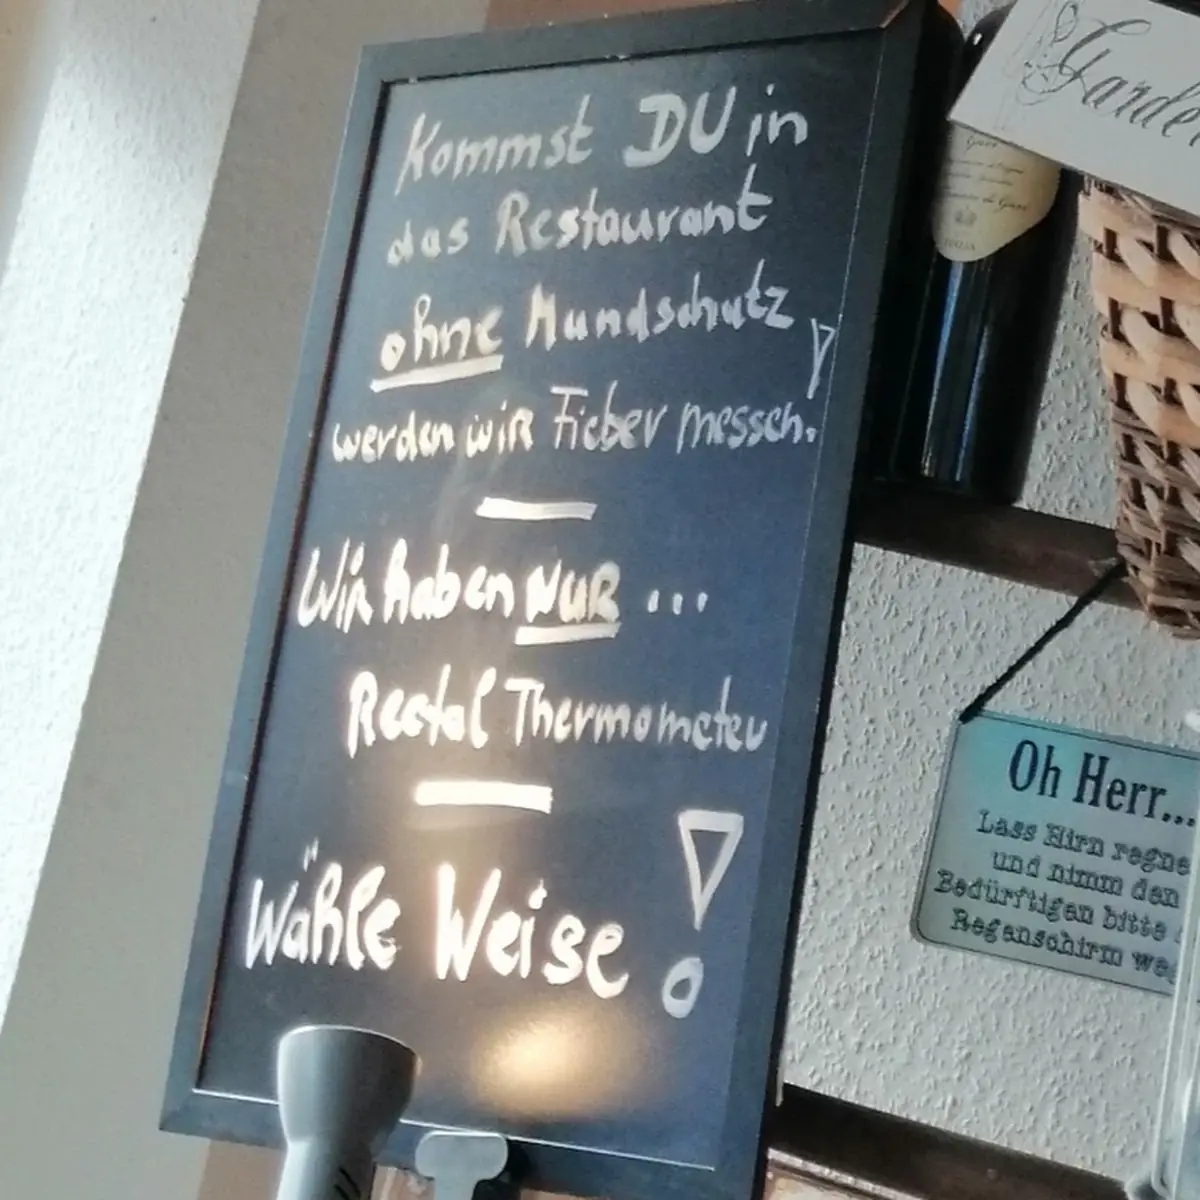 Kommst DU in
das Restaurant
ohne Mundschutz,
werden wir Fieber messen.
Wir haben NUR ...
Rectal Thermometer
Wähle Weise!
Garde
Gavi
ITALIA
Oh Herr...
Lass Hirn regne
und nimm den
Bedürftigen bitte
Regenschirm we